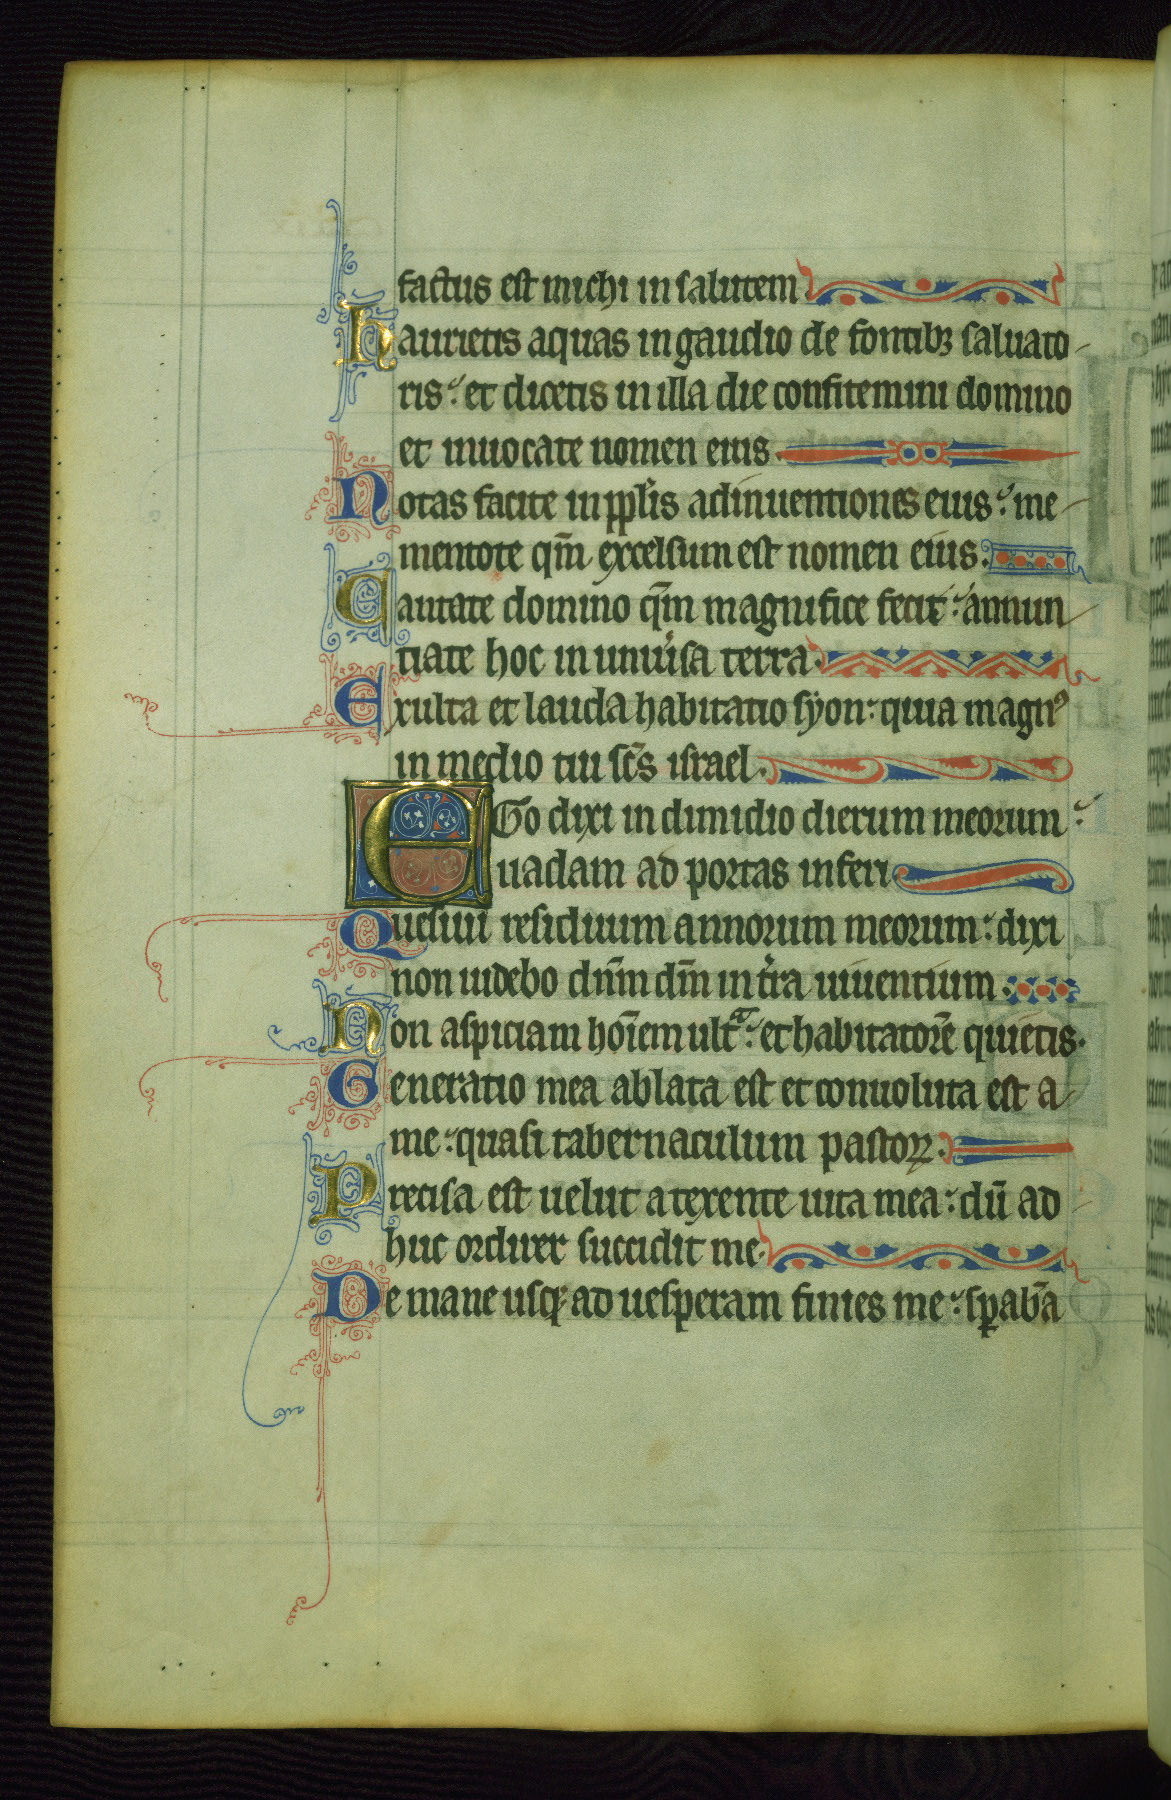 factus est michi in salutem
haurietis aquas in gaudio de fontibꝫ saluato
ris: et dicetis in illa die confitemini domino
et inuocate nomen eius.
Notas facite in ppl̉is adinuentiones eius: me
mentote qm̄ excelsum est nomen eius.
Cantate domino qm̄ magnifice fecit: annun
tiate hoc in uniu̾sa terra.
Exulta et lauda habitatio syon: quia magnꝰ
in medio tui sc̄s israel.
EGo dixi in dimidio dierum meorum:
uadam ad portas inferi
Quesiui residuum annorum meorum: dixi
non uidebo dn̄m dm̄ in t̾ra uiuentium.
Non aspiciam hoīem ultᵃ: et habitatorē quietis.
Generatio mea ablata est et conuoluta est a
me: quasi tabernaculum pastoꝝ.
Precisa est uelut a texente uita mea: dū ad
huc ordirer succidit me.
De mane usqꝫ ad uesperam finies me: sꝑabā